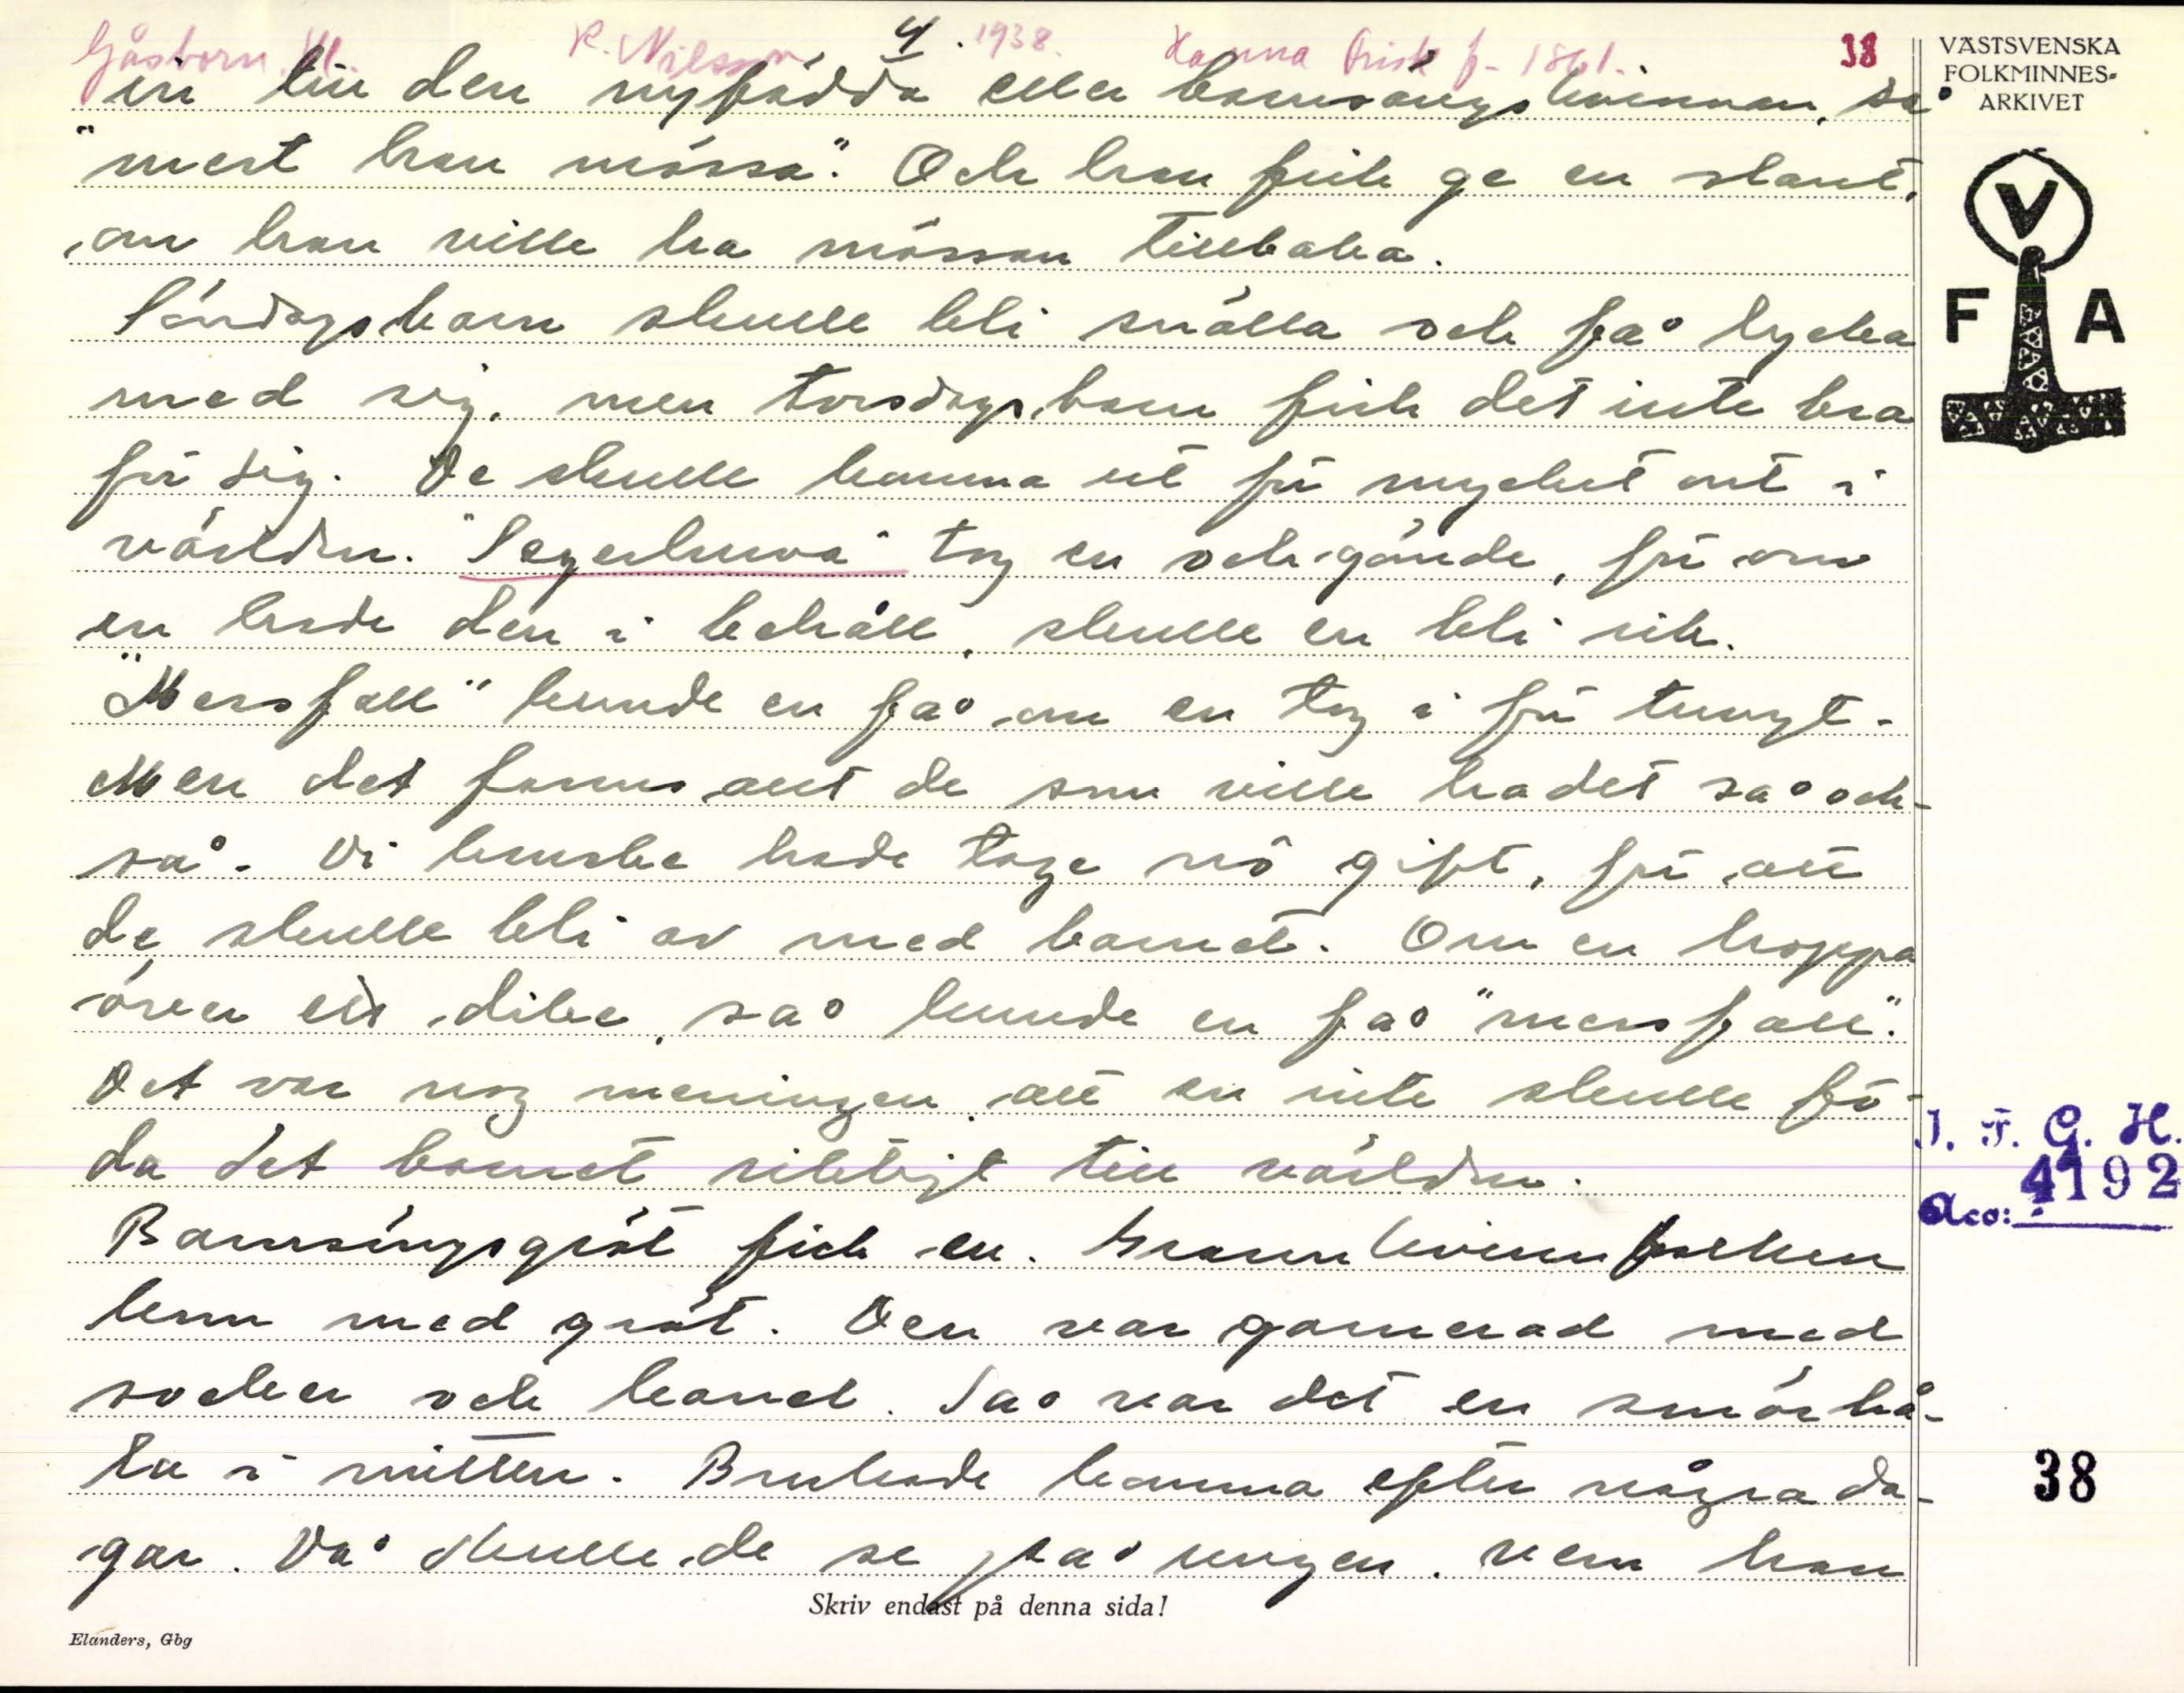 Gåsborn Vl. R. Nilsson 4. 1938. Hanna Frisk f. 1861. 38
in till den nyfödda eller barnsängskvinnan, så
"mest han mössa". Och han fick ge en slant,
om han ville ha mössan tillbaka.
Söndagsbarn skulle bli snälla och få lycka
med sig, men torsdagsbarn fick det inte bra
för sig. De skulle komma ut för mycket ont i
världen. "Segerhuva" tog en och gömde, för om
en hade den i behåll, skulle en bli rik.
"Messfall" kunde en få om en tog i för tungt.
Men det fanns allt de som ville ha det så ock-
så. De kanske hade tage nô gift, för att
de skulle bli av med barnet. Om en hoppa
över ett dike, så kunde en få "messfall".
Det var nog meningen att en inte skulle fö-
da det barnet riktigt till världen.
Barnsängsgröt fick en. Grannkvinnfolken
kom med gröt. Den var garnerad med
socker och kanel. Så var det en smörhå-
la i mitten. Brukade komma efter några da-
gar. Då skulle de se på ungen, vem han
Skriv endast på denna sida!
Elanders, Gbg
VÄSTSVENSKA
FOLKMINNES-
ARKIVET
V
F A
I. F. G. H.
4192
Acc:
38